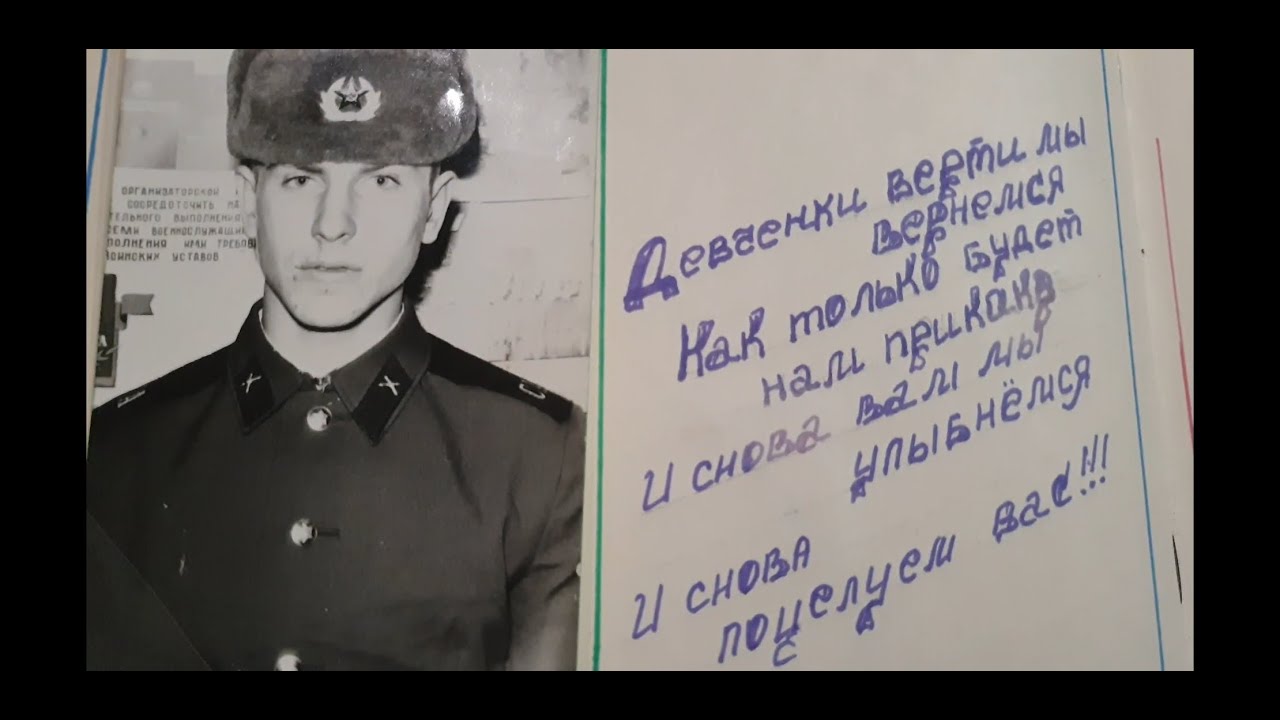 ОРГАНИЗАТОРСКОЙ
СОСРЕДОТОЧИТЬ НА
ТЕЛЬНОГО ВЫПОЛНЕНИЯ
СЕМИ ВОЕННОСЛУЖАЩИ
ПОЛНЕНИЯ ИМИ ТРЕБО
ОИНСКИХ УСТАВОВ
Девченки верти мы
вернемся
Как только будет
нам приказ
И снова вам мы
улыбнёмся
И снова
поцелуем вас!!!